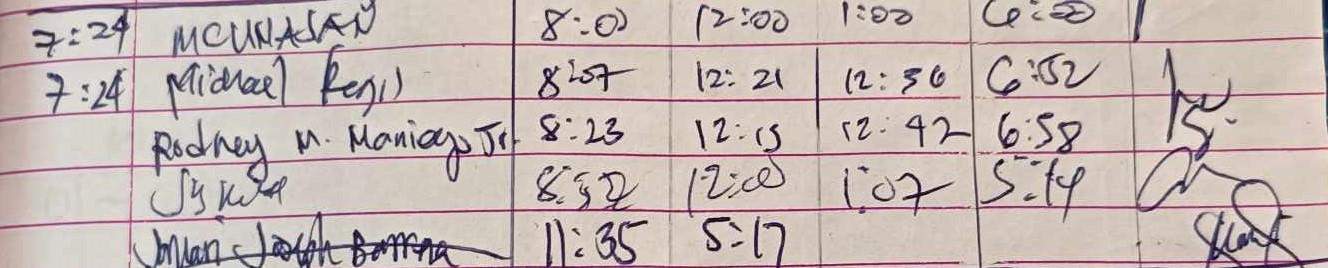 7:24 MCUNASAN 8:00 12:00 1:00 6:00
7:24 Michael Regil 8:07 12:21 12:36 6:52
Rodney M. Maniago Jr. 8:23 12:15 12:42 6:58
8:32 12:00 1:07 5:14
Joseph 11:35 5:17